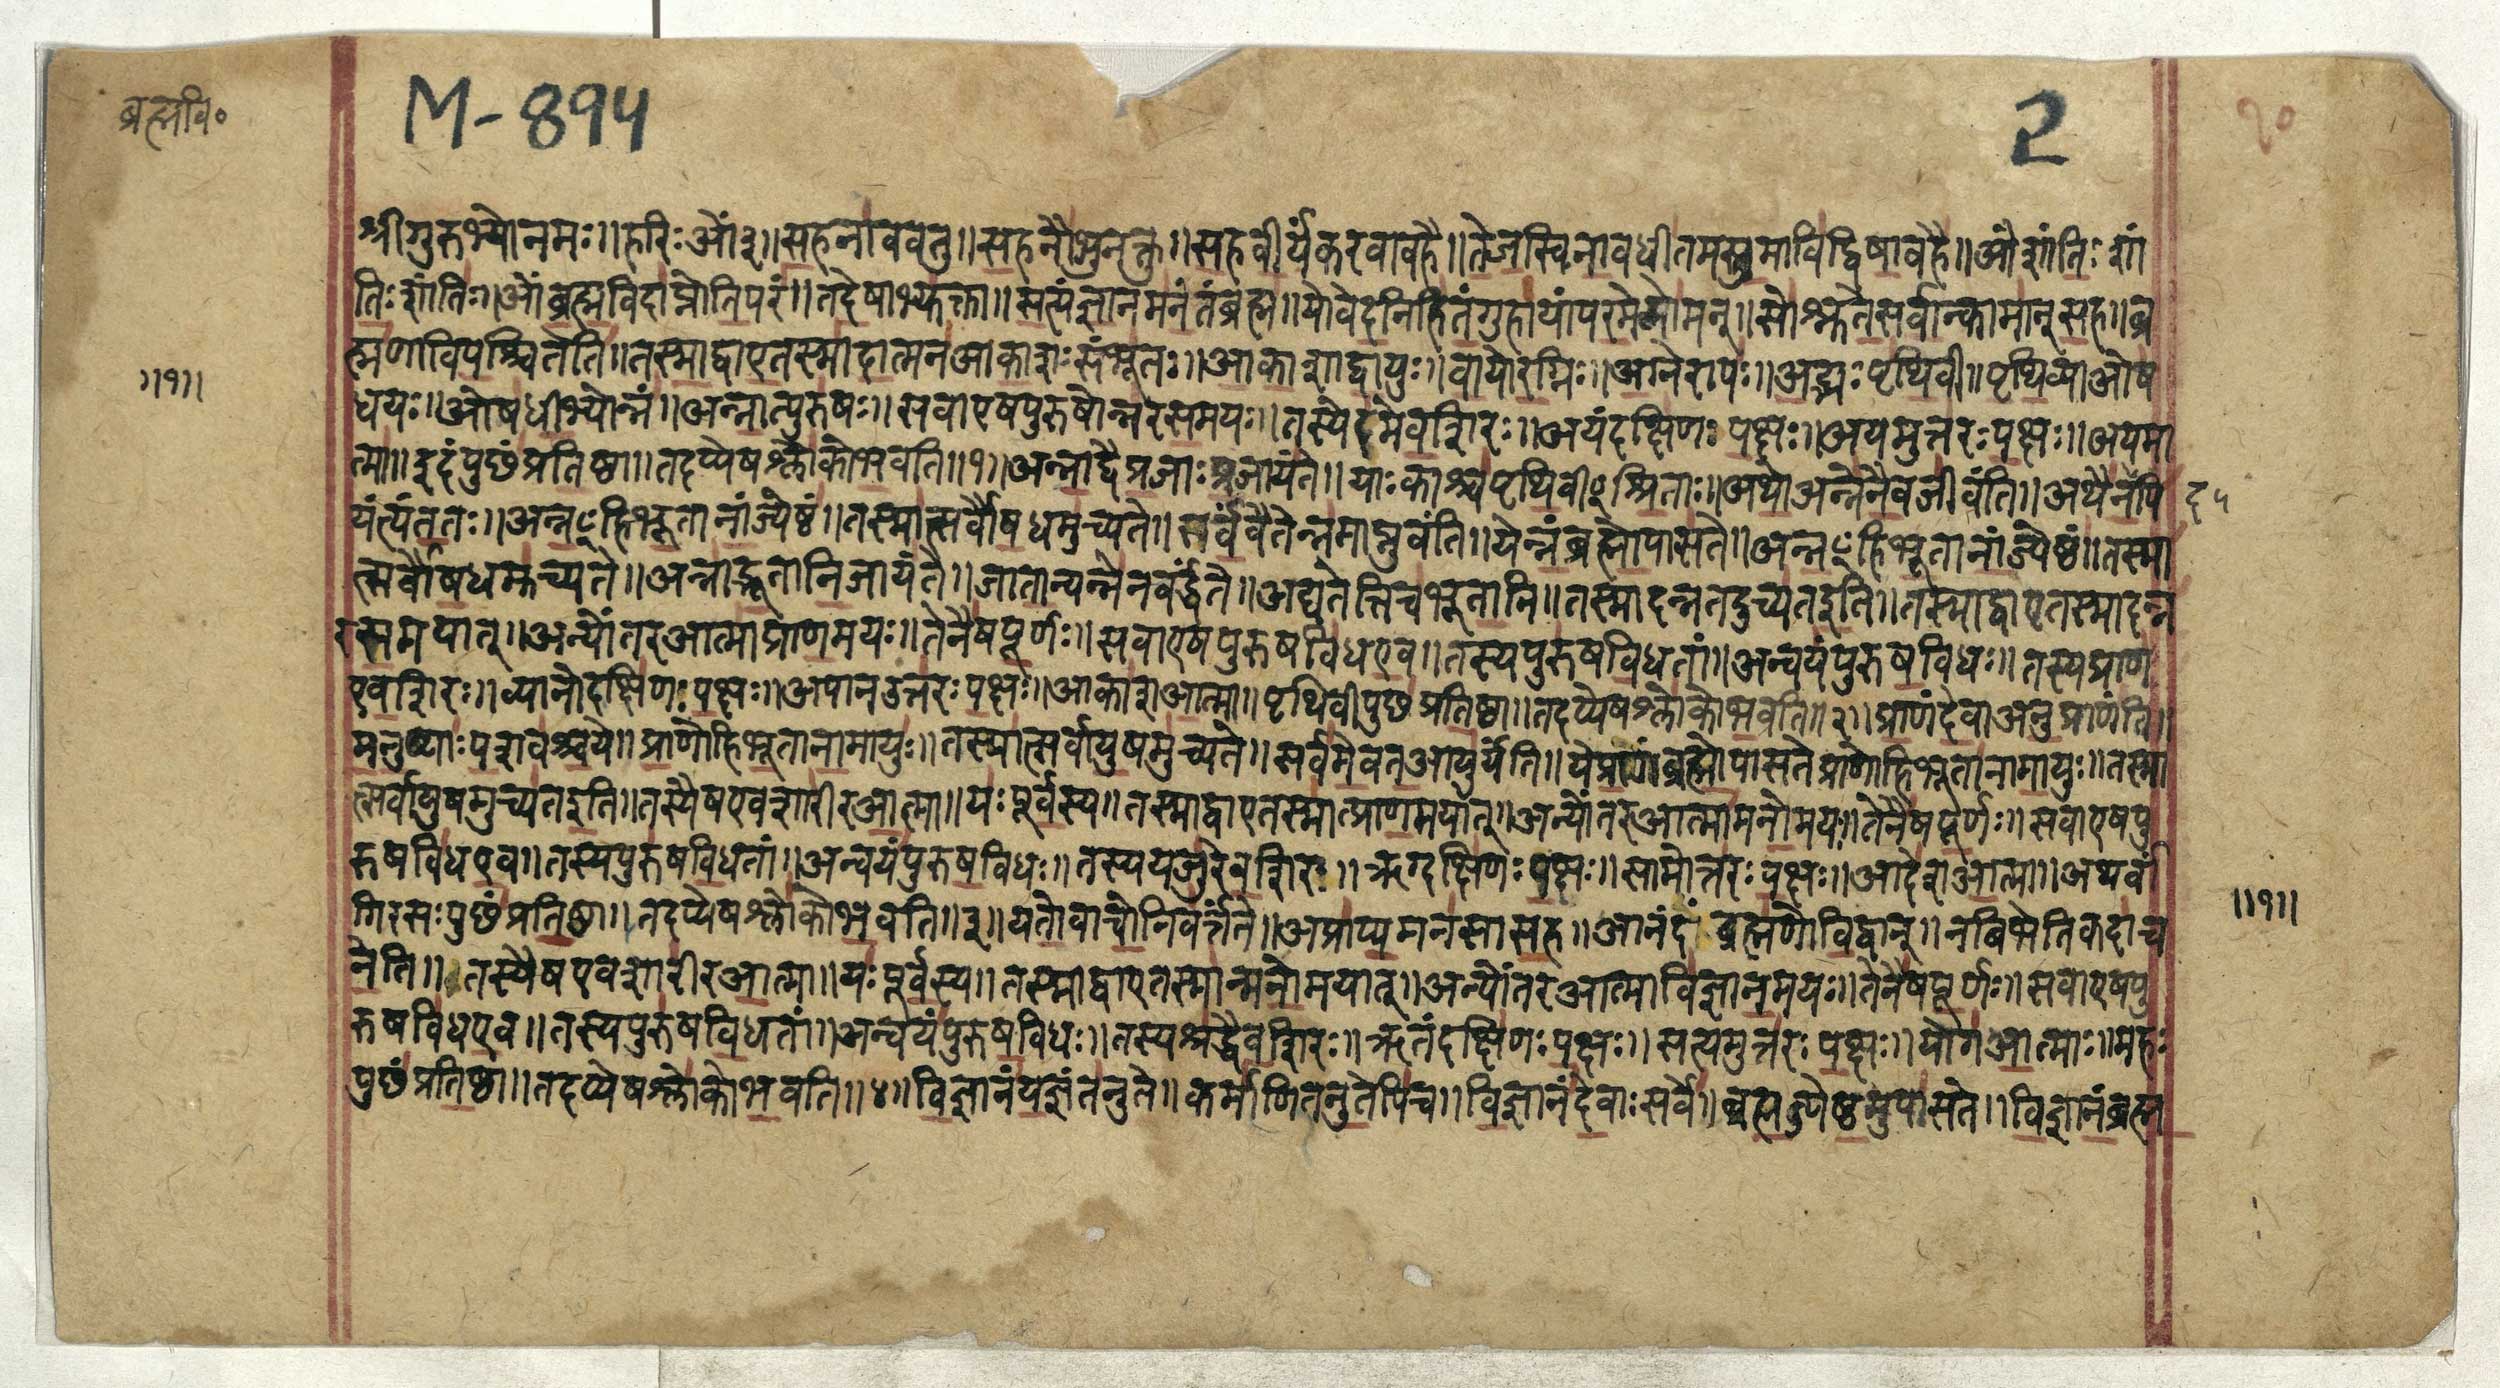 ब्रह्मवि०
M-894
2
१०
श्रीगुरुभ्योनमः॥हरिःओं३॥सहनाववतु॥सहनौभुनक्तु॥सहवीर्यंकरवावहै॥तेजस्विनावधीतमस्तुमाविद्विषावहै॥ओंशांतिःशां
तिःशांतिः॥ओंब्रह्मविदाप्नोतिपरं॥तदेषाभ्युक्ता॥सत्यंज्ञानमनंतंब्रह्म॥योवेदनिहितंगुहायांपरमेव्योमन्॥सोश्नुतेसर्वान्कामान्सह॥ब्र
ह्मणाविपश्चितेति॥तस्माद्वाएतस्मादात्मनआकाशःसंभूतः॥आकाशाद्वायुः॥वायोरग्निः॥अग्नेरापः॥अद्भ्यःपृथिवी॥पृथिव्याओष
॥१॥
धयः॥ओषधीभ्योन्नं॥अन्नात्पुरुषः॥सवाएषपुरुषोन्नरसमयः॥तस्येदमेवशिरः॥अयंदक्षिणःपक्षः॥अयमुत्तरःपक्षः॥अयमा
त्मा॥इदंपुछंप्रतिष्ठा॥तदप्येषश्लोकोभवति॥१॥अन्नाद्वैप्रजाःप्रजायंते॥याःकाश्चपृथिवीꣳश्रिताः॥अथोअन्नेनैवजीवंति॥अथैनपि
द५
यंत्यंततः॥अन्नꣳहिभूतानांज्येष्ठं॥तस्मात्सर्वौषधमुच्यते॥सर्वंवैतेन्नमाप्नुवंति॥येन्नंब्रह्मोपासते॥अन्नꣳहिभूतानांज्येष्ठं॥तस्मा
त्सर्वौषधमुच्यते॥अन्नाद्भूतानिजायंते॥जातान्यन्नेनवर्द्धंते॥अद्यतेत्तिचभूतानि॥तस्मादन्नतदुच्यतइति॥तस्माद्वाएतस्मादन्न
रसमयात्॥अन्योंतरआत्माप्राणमयः॥तेनैषपूर्णः॥सवाएषपुरुषविधएव॥तस्यपुरुषविधतां॥अन्वयंपुरुषविधः॥तस्यप्राण
एवशिरः॥व्यानोदक्षिणःपक्षः॥अपानउत्तरःपक्षः॥आकाशआत्मा॥पृथिवीपुछंप्रतिष्ठा॥तदप्येषश्लोकोभवति॥२॥प्राणंदेवाअनुप्राणंति॥
मनुष्याःपशवश्चये॥प्राणोहिभूतानामायुः॥तस्मात्सर्वायुषमुच्यते॥सर्वमेवतआयुर्यंति॥येप्राणंब्रह्मोपासतेप्राणोहिभूतानामायुः॥तस्मा
त्सर्वायुषमुच्यतइति॥तस्यैषएवशारीरआत्मा॥यःपूर्वस्य॥तस्माद्वाएतस्मात्प्राणमयात्॥अन्योंतरआत्मामनोमयः॥तेनैषपूर्णः॥सवाएषपु
रुषविधएव॥तस्यपुरुषविधतां॥अन्वयंपुरुषविधः॥तस्ययजुरेवशिरः॥ऋग्दक्षिणःपक्षः॥सामोत्तरःपक्षः॥आदेशआत्मा॥अथर्वां
॥१॥
गिरसःपुछंप्रतिष्ठा॥तदप्येषश्लोकोभवति॥३॥यतोवाचोनिवर्त्तंते॥अप्राप्यमनसासह॥आनंदं ब्रह्मणोविद्वान्॥नबिभेतिकदाच
नेति॥ तस्यैषएवशारीरआत्मा॥यःपूर्वस्य॥तस्माद्वाएतस्मान्मनोमयात्॥अन्योंतरआत्माविज्ञानमयः॥तेनैषपूर्णः॥सवाएषपु
रुषविधएव॥तस्यपुरुषविधतां॥अन्वयंपुरुषविधः॥तस्यश्रद्धैवशिरः॥ऋतंदक्षिणःपक्षः॥सत्यमुत्तरःपक्षः॥योगआत्माः॥महः
पुछंप्रतिष्ठा॥तदप्येषश्लोकोभवति॥४॥विज्ञानंयज्ञंतनुते॥कर्माणितनुतेपिच॥विज्ञानंदेवाःसर्वे॥ब्रह्मज्येष्ठमुपासते॥विज्ञानंब्रह्म